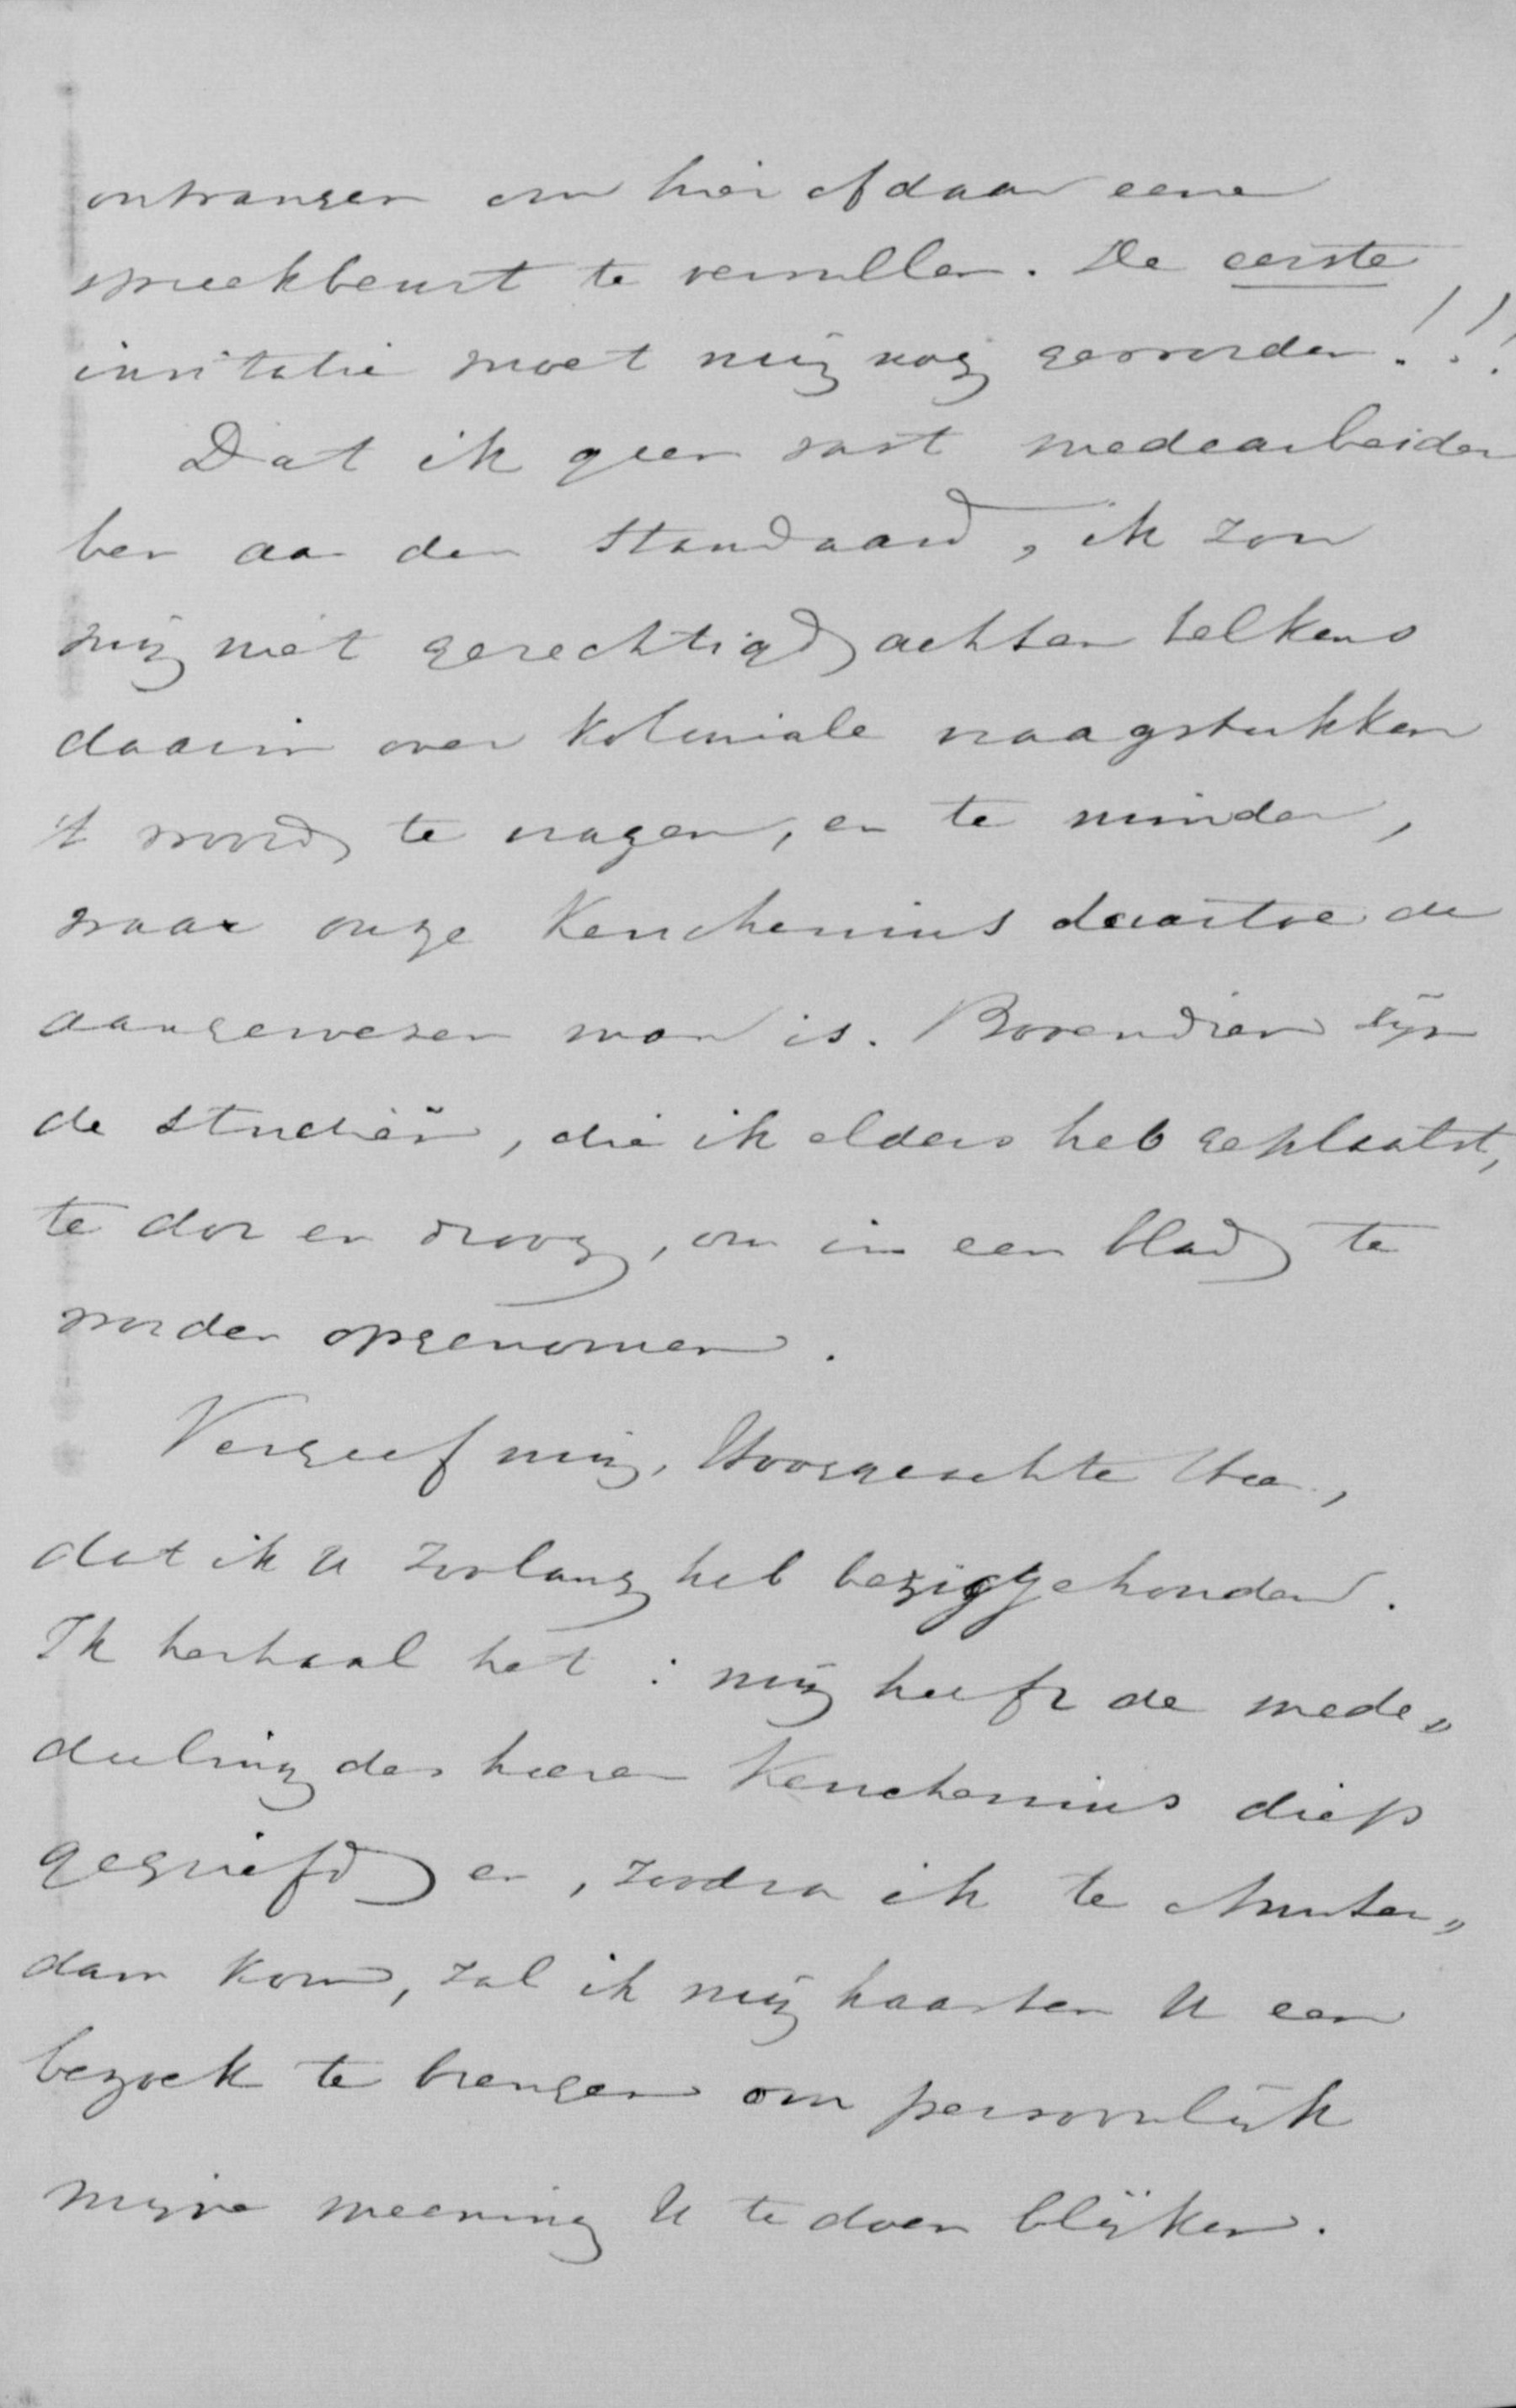 ontvangen om hier of daar eene
spreekbeurt te vervullen. De eerste
invitatie moet mij nog geworden!!!
Dat ik geen vast medearbeider
ben aan den Standaard, ik zou
mij niet gerechtigd achten telkens
daarin over koloniale vraagstukken
't woord te vragen, en te minder,
waar onze Keuchenius daartoe de
aangewezen man is. Bovendien zijn
de studiën, die ik elders heb geplaatst,
te dor en droog, om in een blad te
worden opgenomen.
Vergeef mij, Hooggeachte Heer,
dat ik U zoolang heb beziggehouden.
Ik herhaal het: mij heeft de mede„
deeling des heeren Keuchenius diep
gegriefd en, zoodra ik te Amster„
dam kom, zal ik mij haasten U een
bezoek te brengen om persoonlijk
mijne meening U te doen blijken.